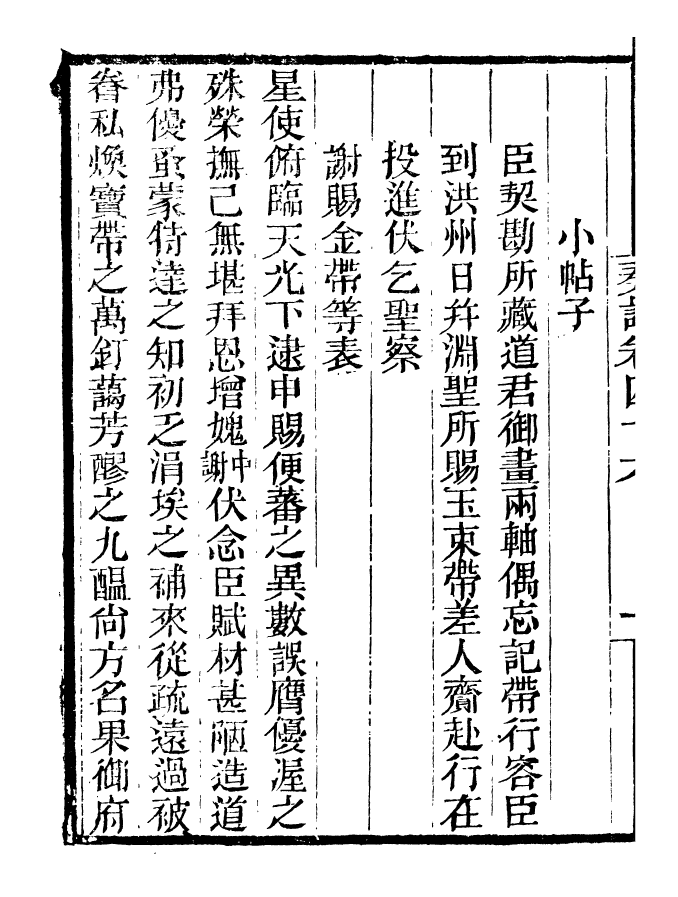 奏議卷四十六
一
小帖子
臣契勘所藏道君御畫兩軸偶忘記帶行容臣
到洪州日幷淵聖所賜玉束帶差人齎赴行在
投進伏乞聖察
謝賜金帶等表
星使俯臨天光下逮申賜便蕃之異數誤膺優渥之
殊榮撫己無堪拜恩增媿中謝伏念臣賦材甚陋造道
弗優蚤蒙特達之知初乏涓埃之補來從疏遠過被
眷私煥寶帶之萬釘藹芳醪之九醞尙方名果御府